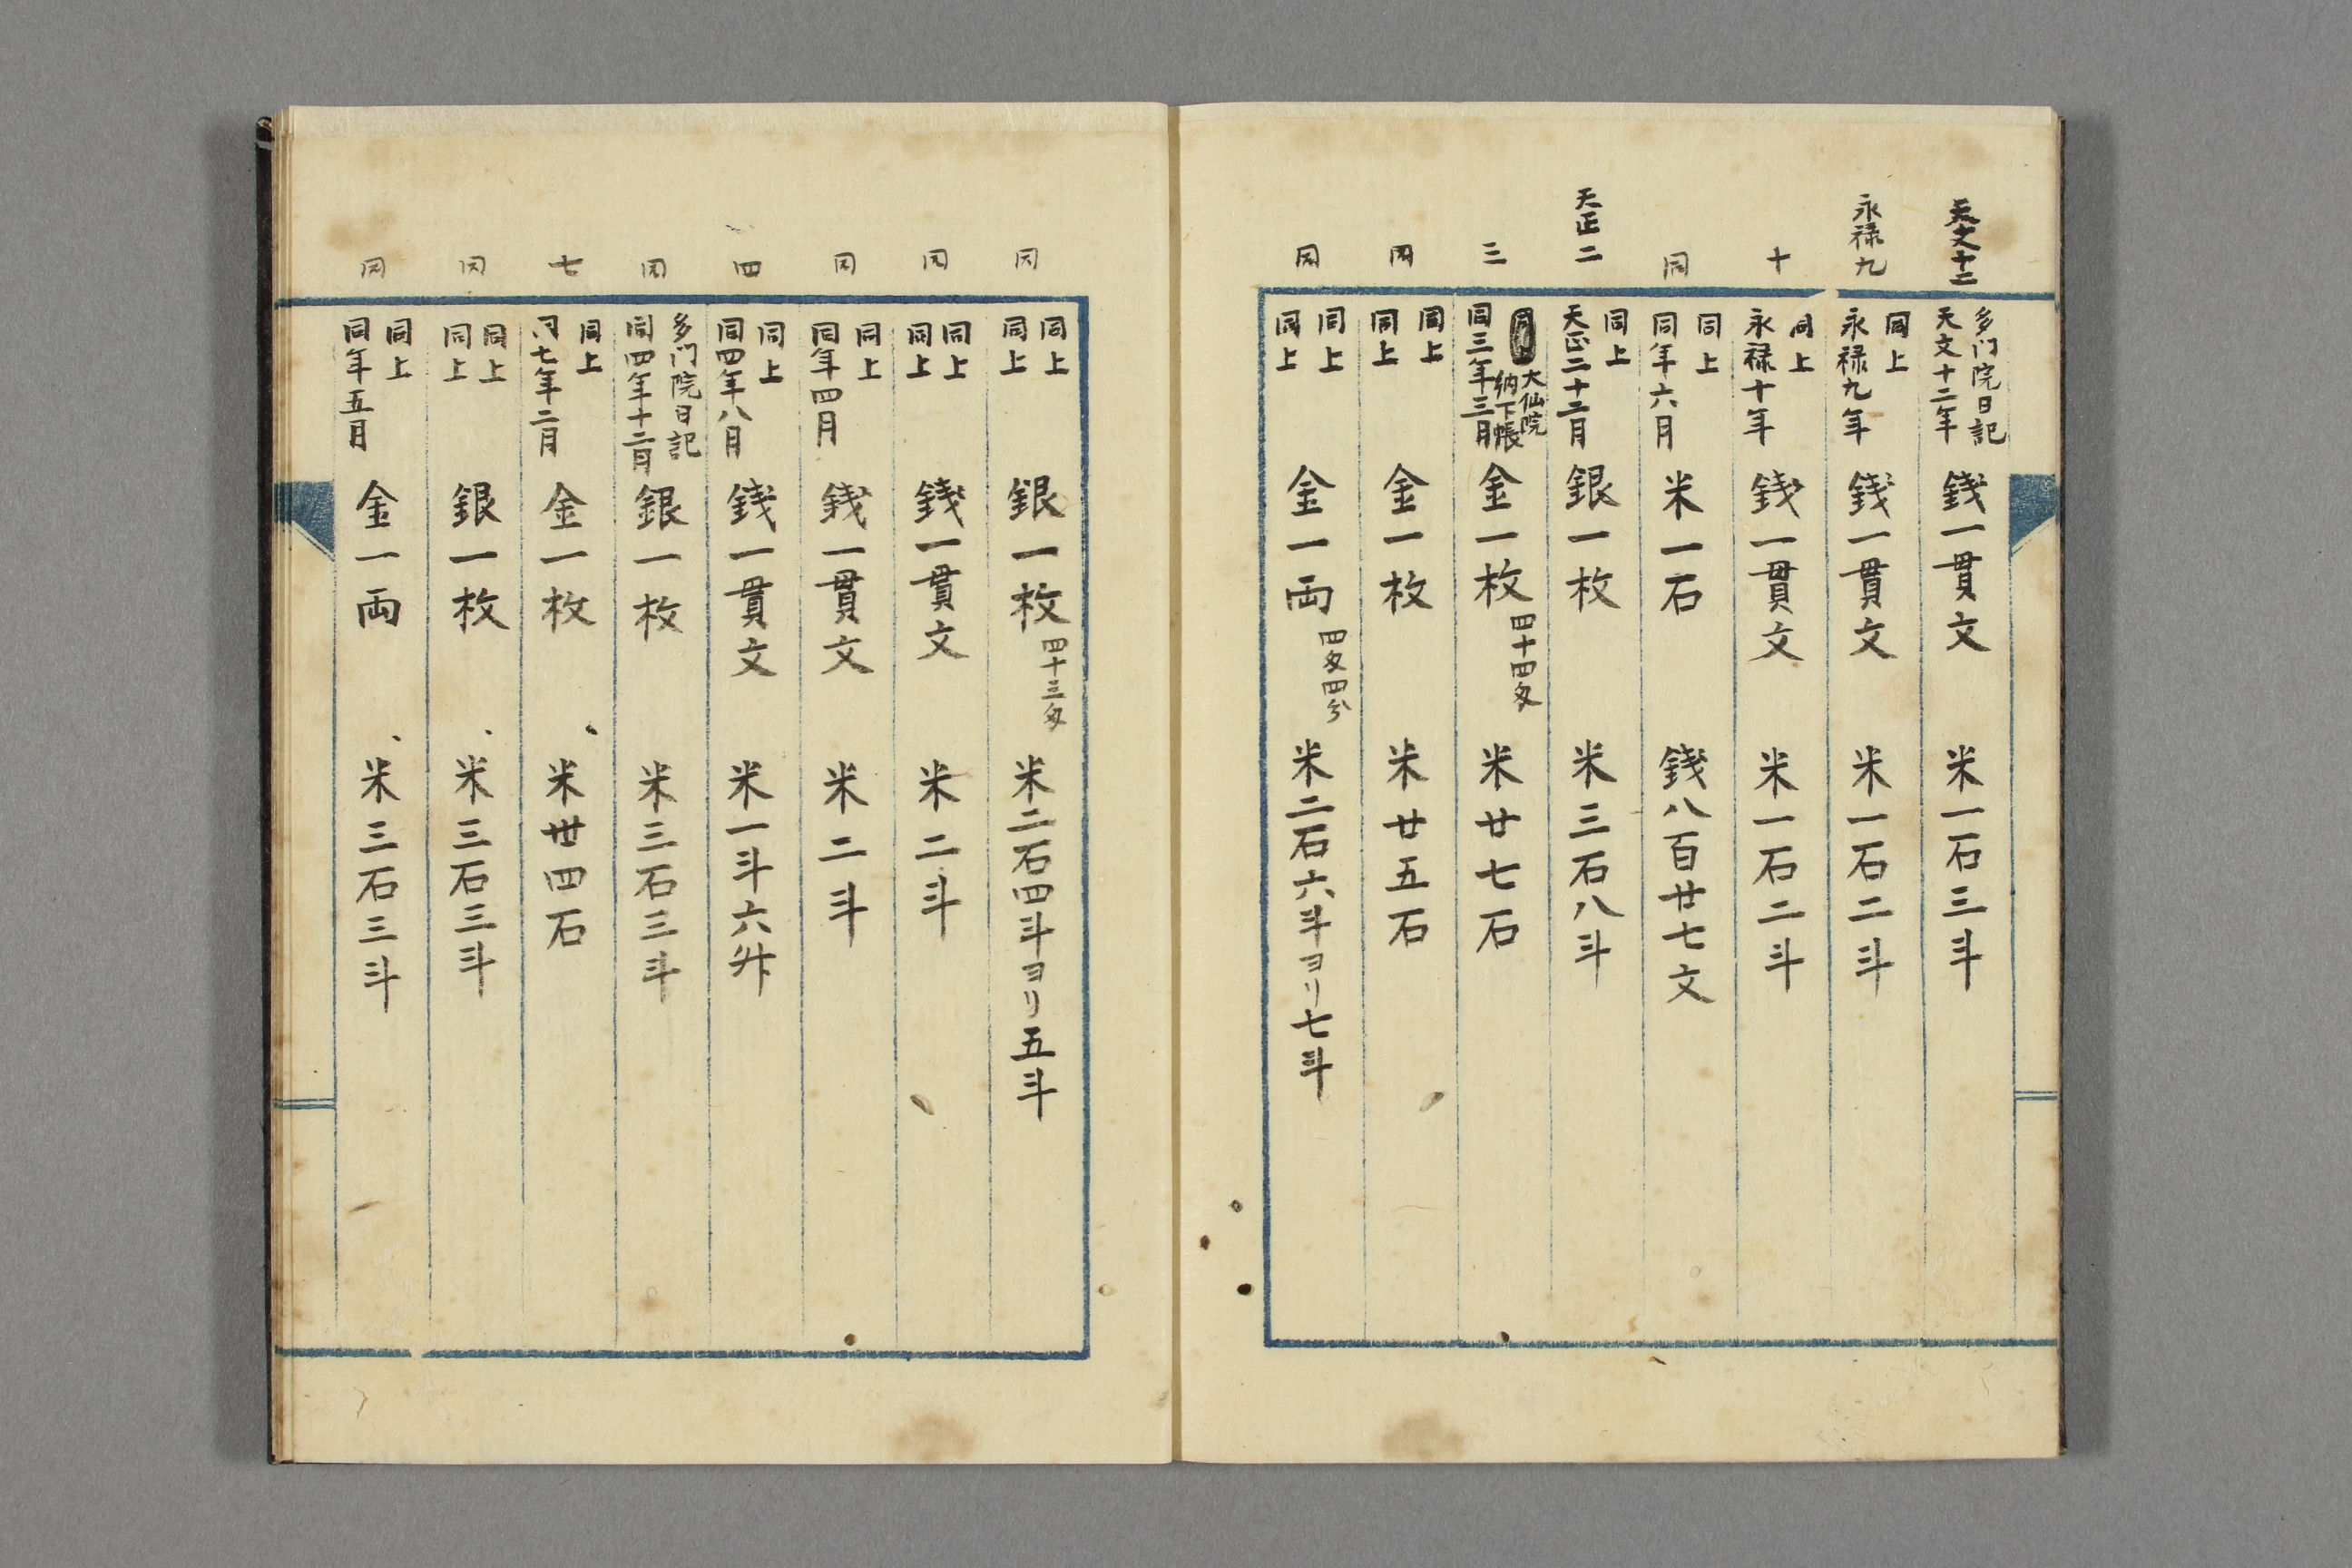 天文十二
多門院日記
天文十二年
銭一貫文　米一石三斗
永禄九
同上
永禄九年
銭一貫文　米一石二斗
十
同上
永禄十年
銭一貫文　米一石二斗
同
同上
同年六月
米一石　銭八百廿七文
天正二
同上
天正二十二月
銀一枚　米三石八斗
三
同
大仙院
納下帳
同三年三月
金一枚
四十四匁
米廿七石
同
同上
同上
金一枚　米廿五石
同
同上
同上
金一両
四匁四分
米二石六斗ヨリ七斗
同
同上
同上
銀一枚
四十三匁
米二石四斗ヨリ五斗
同
同上
同上
銭一貫文　米二斗
同
同上
同年四月
銭一貫文　米二斗
四
同上
同四年八月
銭一貫文　米一斗六升
同
多門院日記
同四年十二月
銀一枚　米三石三斗
七
同上
同七年二月
金一枚　、米丗四石
同
同上
同上
銀一枚　、米三石三斗
同
同上
同年五月
金一両　、米三石三斗